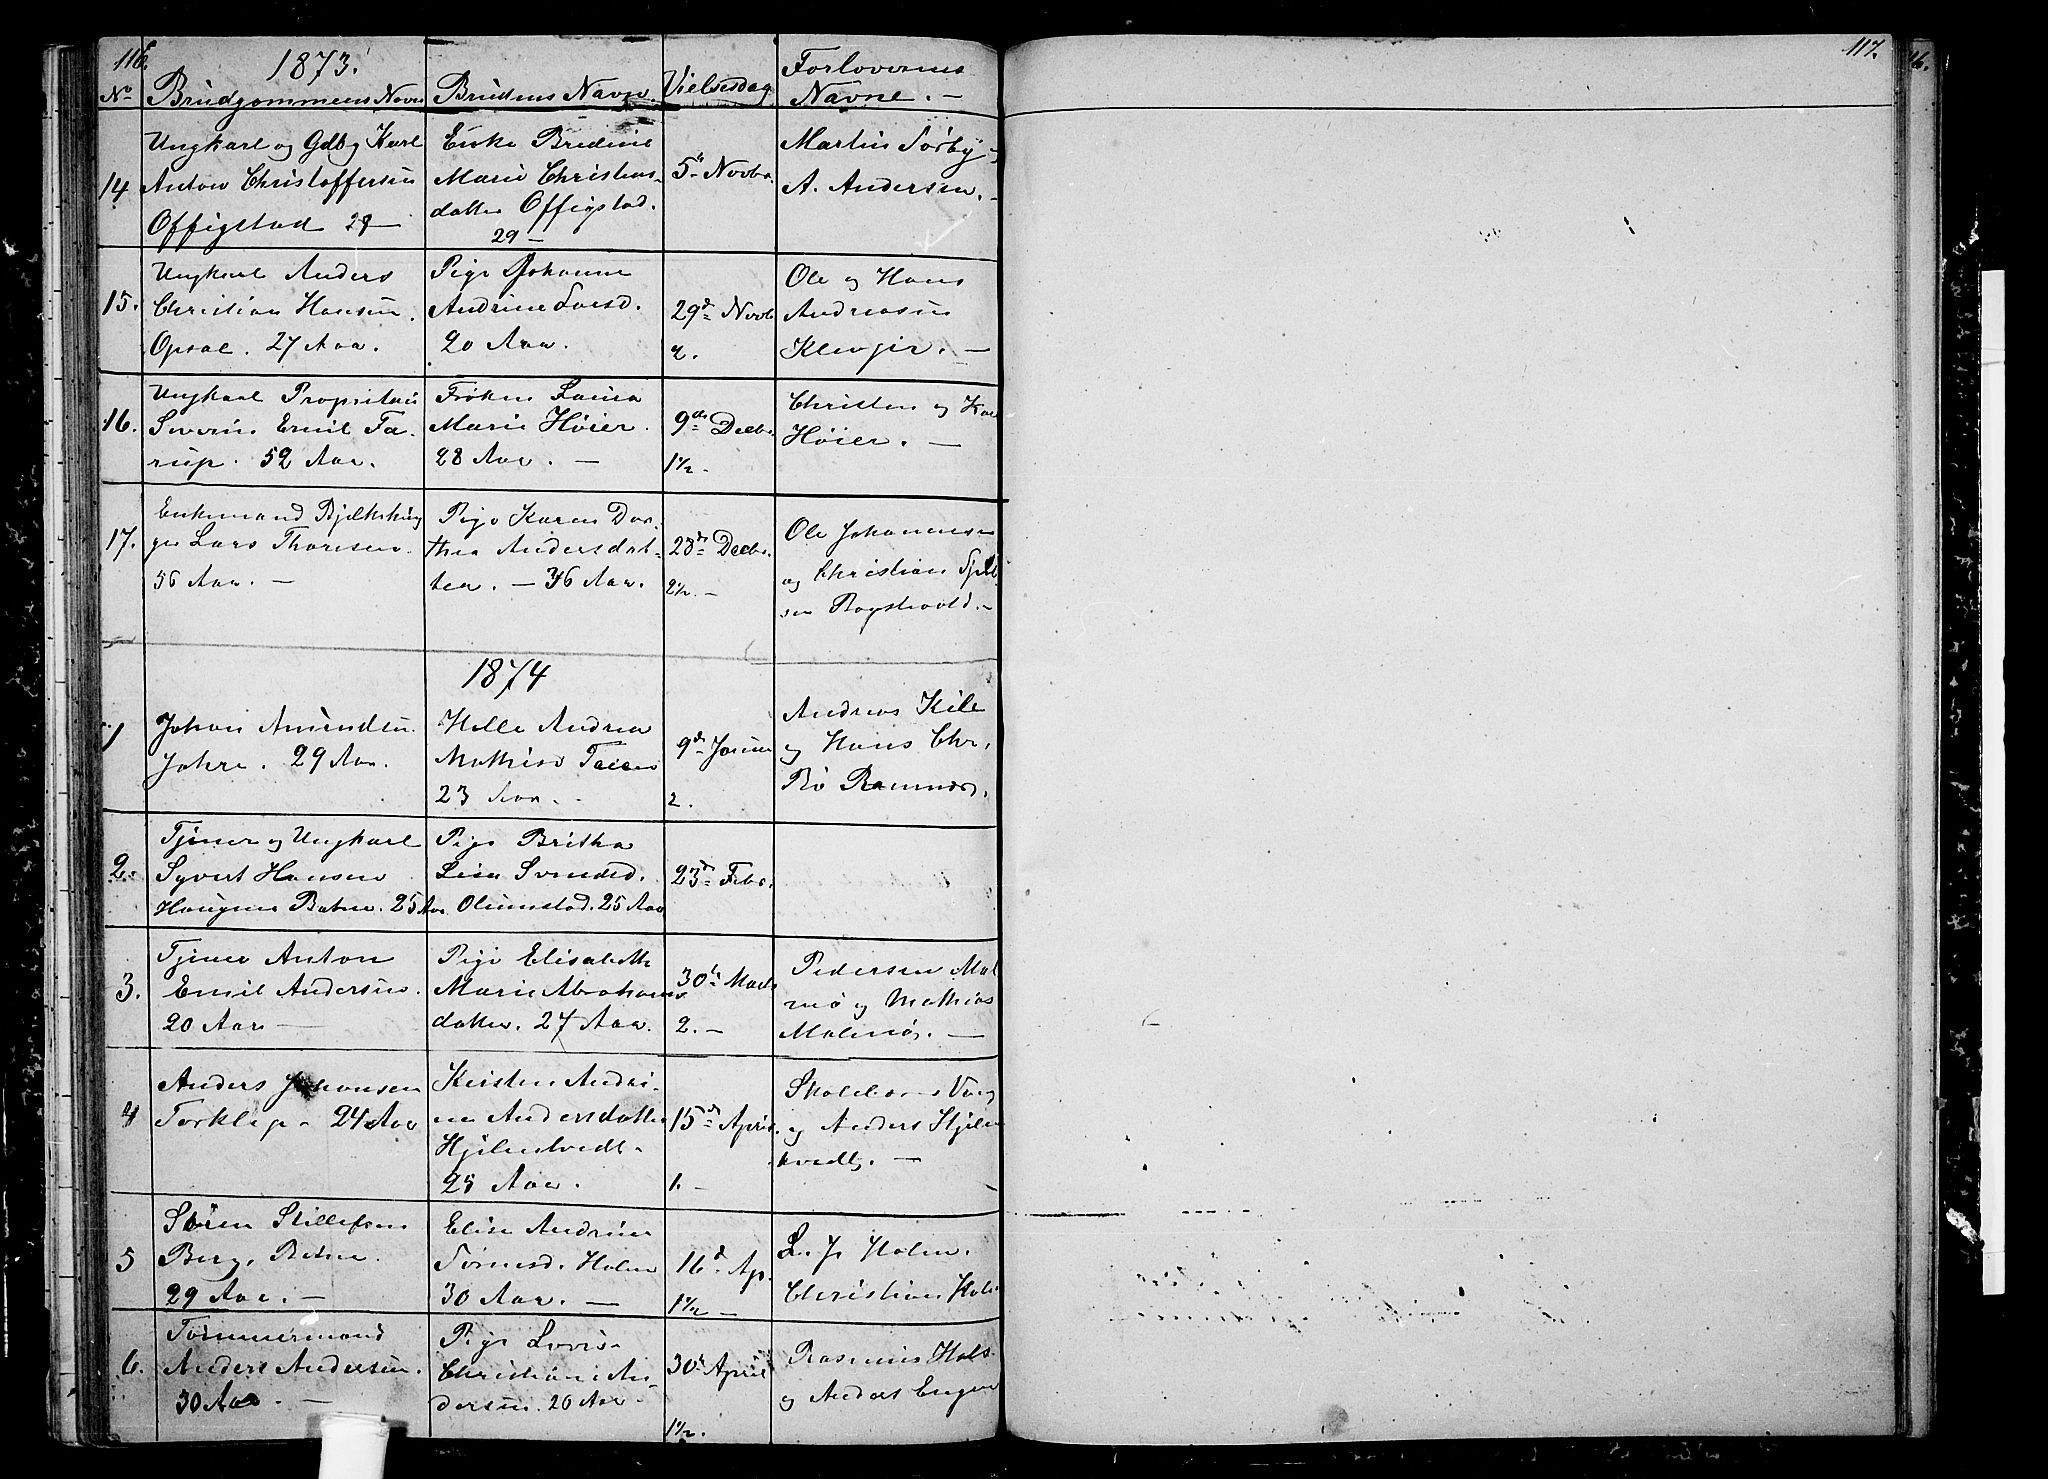 116.
1873.
No
Brudgommens Navn
Brudens Navn
Vielsesdag
Forlovernes
Navne. —
14
Ungkarl og Gdbg Karl
Anton Christoffersen
Offigstad 29 —
Enke Bredine
Marie Christians-
datter Offigstad.
29 —
5te Novbr.
Martin Sørby
A. Andersen. —
15.
Ungkarl Anders
Christian Hansen.
Opsal. 27 Aar.
Pige Johanne
Andrine Larsd.
20 Aar.
29de Novb
2.
Ole og Hans
Andreasen
Klevjer. —
16.
Ungkarl Proprietær
Severin Emil Fa-
rup. 52 Aar.
Frøken Lovisa
Marie Höier.
28 Aar. —
9de Decbr.
1½.
Christen og
Höier. —
17.
Enkemand
Lars Thoresen.
56 Aar. —
Pige Karen Dor-
thea Andersdat-
ter. — 36 Aar.
28de Decbr.
2½. —
Ole Johannesen
og Christian
sen Rogstvold. —
1874
1
Johan Amundsen
Johre. 29 Aar.
Helle Andrea
Mathisd
23 Aar.
9de Januar
2.
Andreas Kile
og Hans Chr.
Bö Ramnæs.
2.
Tjener og Ungkarl
Syvert Hansen
Haugene Botne. 25 Aar
Pige Britha
Lisa Svendsd.
Olumstad. 25 Aar
23de Febr.
3.
Tjener Anton
Emil Andersen.
20 Aar —
Pige Elisabeth
Marie Abrahams
datter. 27 Aar.
30te Marts
2. —
Pedersen Mal
mö og Mathias
Malmö. —
4
Anders Johansen
Torklep. 24 Aar
Kirsten Andri-
ne Andersdatter
Hjelmtvedt.
25 Aar.
15de April.
1. —
og Anders Hjelm
tvedt. —
5
Sören Stillefsen
Berg, Botne.
29 Aar. —
Elise Andrine
Tørresd. Holm
30 Aar. —
16de Ap.
1½ —
L. J. Holm.
Christian Holm
6.
Tömmermand
Anders Andersen.
30 Aar. —
Pige Lovise
Christiane An-
dersen. 26 Aar
30te April
1½.
Rasmus Hals
og Anders Engene
117.